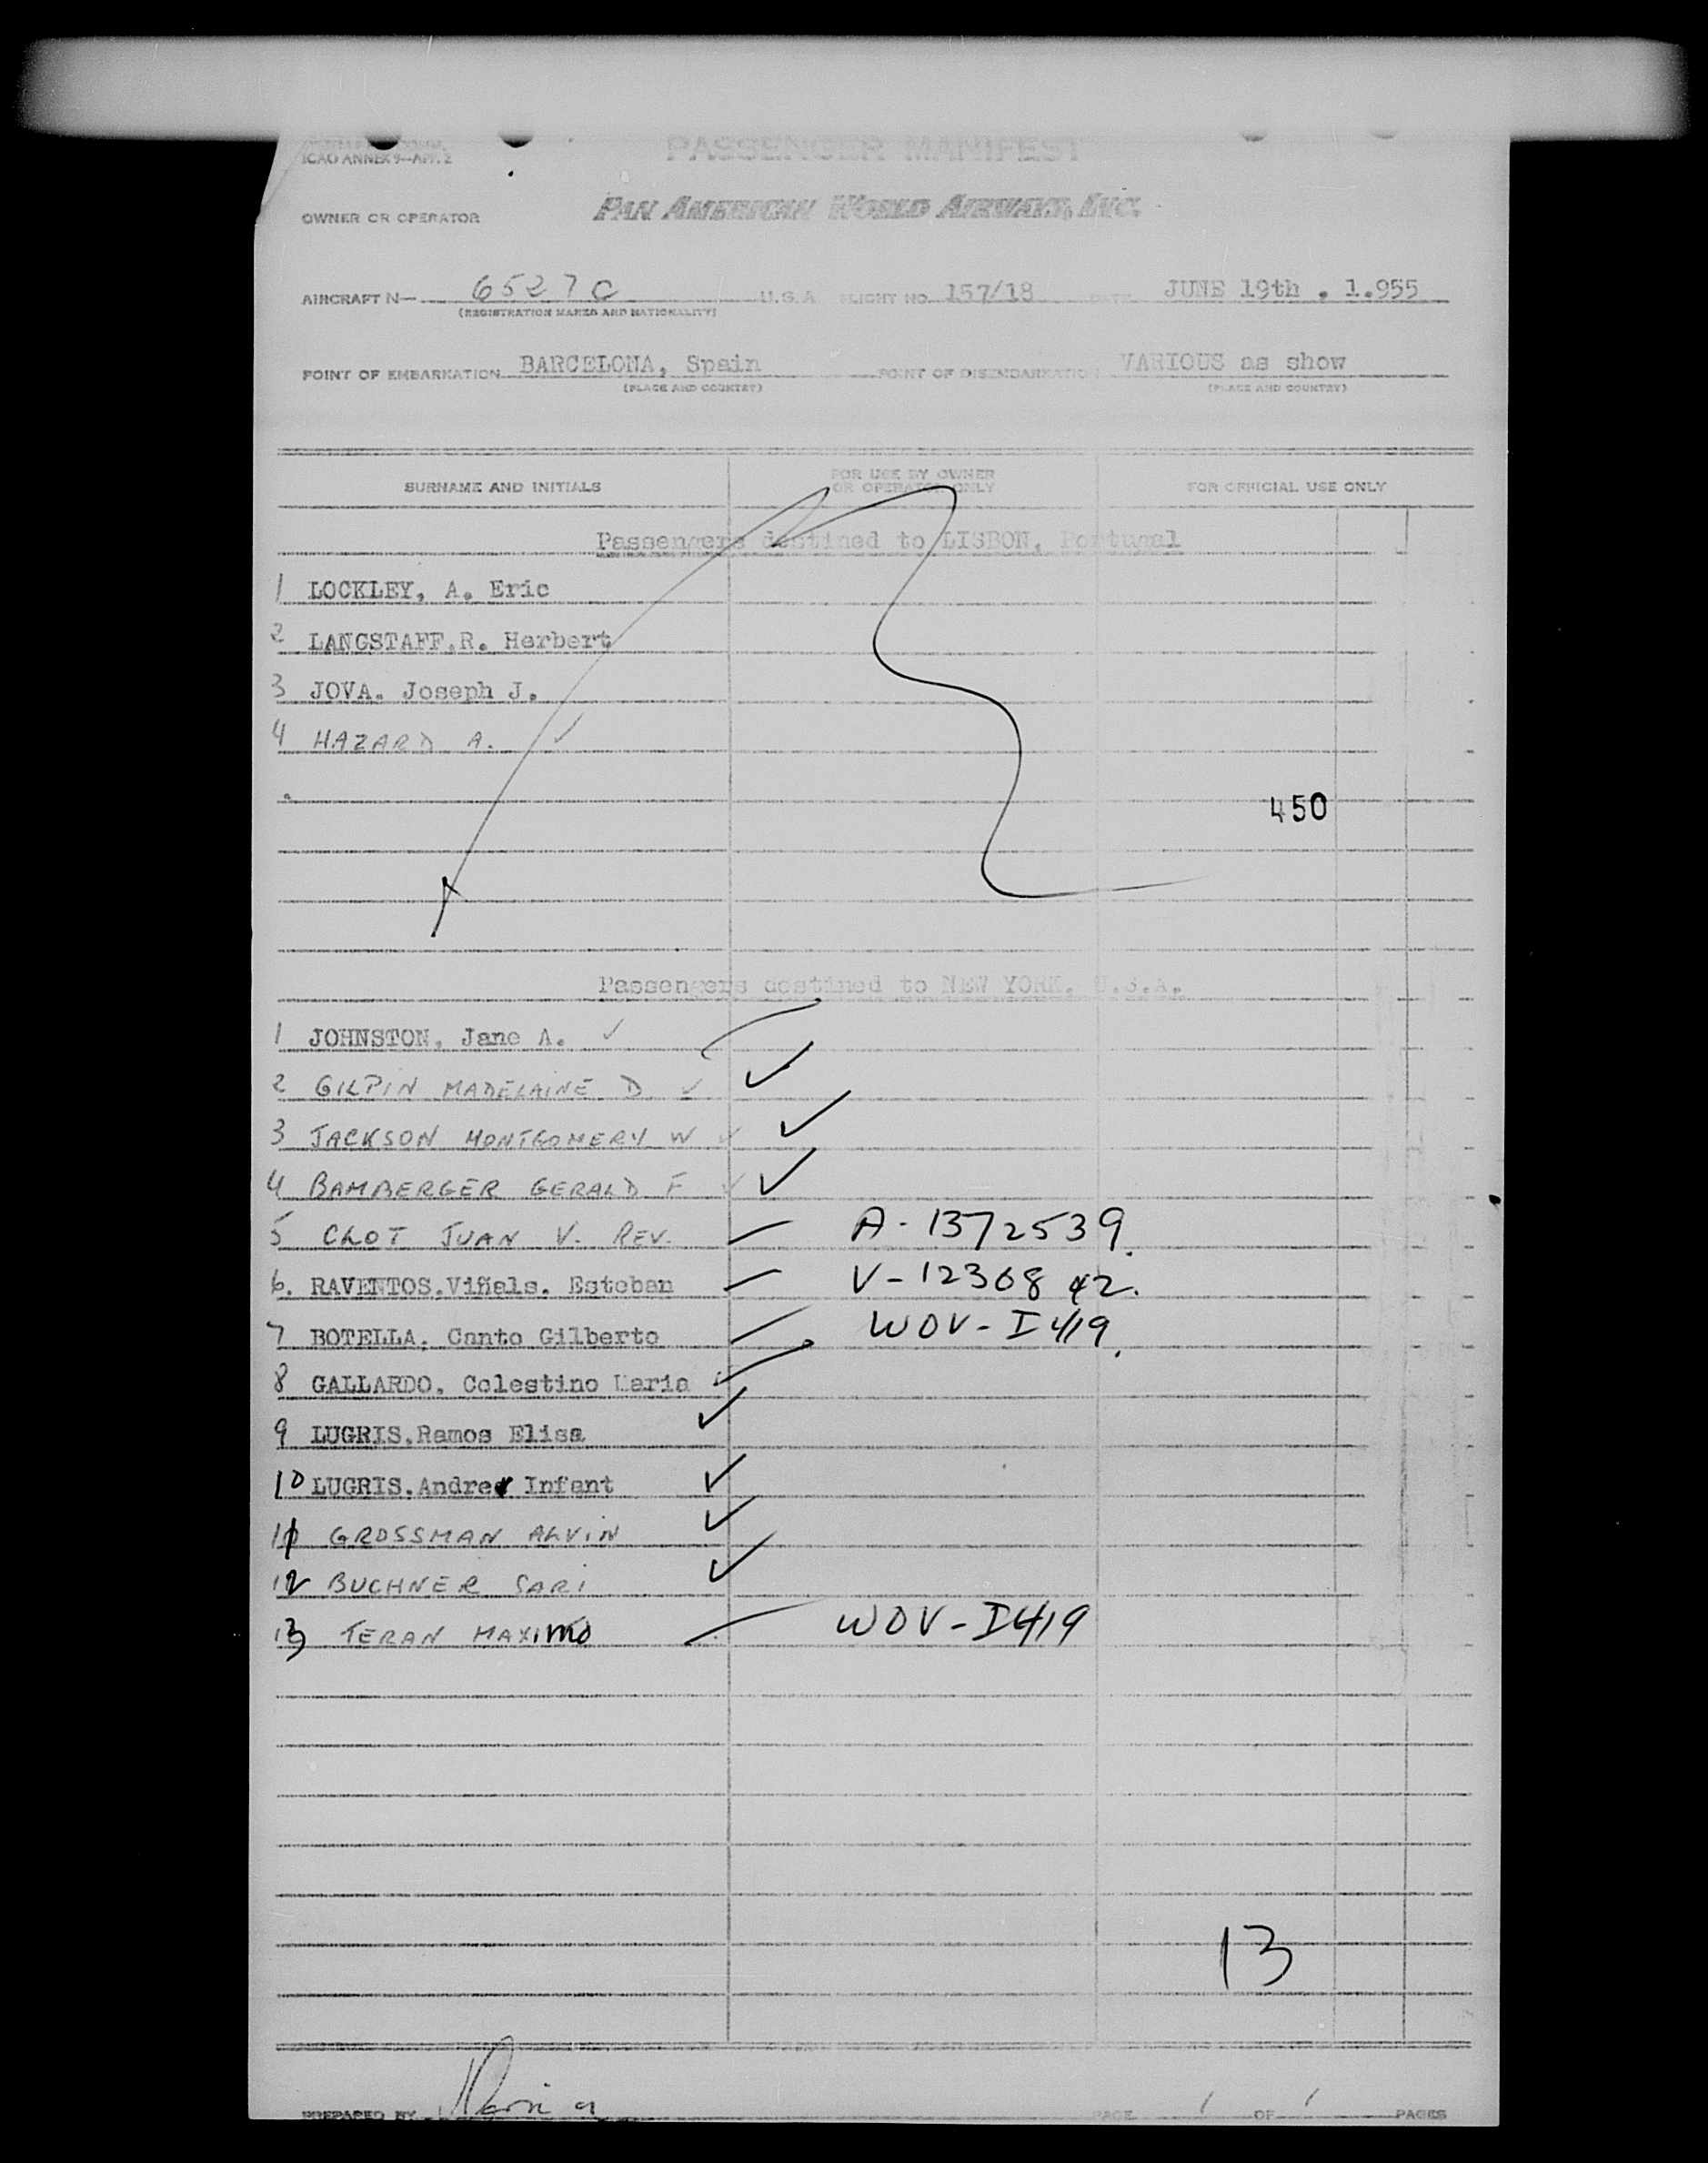 ICAO ANNEX 9—APP. 2
PASSENGER MANIFEST
OWNER OR OPERATOR PAN AMERICAN WORLD AIRWAYS, INC.
AIRCRAFT N— 6527C U.S.A. FLIGHT NO. 157/18 DATE JUNE 19th . 1.955
(REGISTRATION MARKS AND NATIONALITY)
POINT OF EMBARKATION BARCELONA, Spain POINT OF DISEMBARKATION VARIOUS as show
(PLACE AND COUNTRY) (PLACE AND COUNTRY)
SURNAME AND INITIALS FOR USE BY OWNER OR OPERATOR ONLY FOR OFFICIAL USE ONLY
Passengers destined to LISBON, Portugal
1 LOCKLEY, A. Eric
2 LANGSTAFF.R. Herbert
3 JOVA. Joseph J.
4 HAZARD A. ✓
450
Passengers destined to NEW YORK. U.S.A.
1 JOHNSTON, Jane A. ✓
2 GILPIN MADELAINE D. ✓ ✓
3 JACKSON MONTGOMERY W ✓ ✓
4 BAMBERGER GERALD F ✓ ✓
5 CLOT JUAN V. REV. A-1372539.
6. RAVENTOS.Viñals. Esteban V-1236842.
7 BOTELLA. Canto Gilberto WOV-I419.
8 GALLARDO. Celestino Maria
9 LUGRIS.Ramos Elisa ✓
10 LUGRIS.Andres Infant ✓
11 GROSSMAN ALVIN ✓
12 BUCHNER SARI ✓
13 TERAN MAXIMO WOV-I419
13
PREPARED BY PAGE 1 OF 1 PAGES